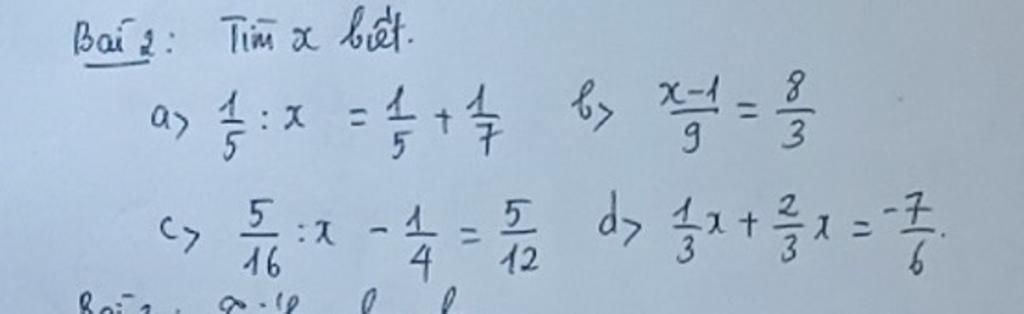 Bài 2: Tìm x biết.
a> 1/5 : x = 1/5 + 1/7 b> x-1/9 = 8/3
c> 5/16 : x - 1/4 = 5/12 d> 1/3 x + 2/3 x = -7/6.